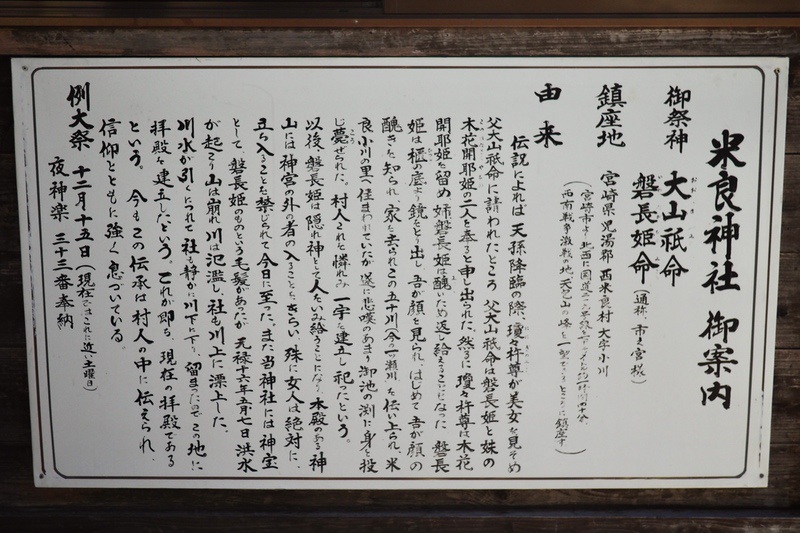 米良神社 御案内
御祭神 大山祇命
磐長姫命(通称、市き宮様)
鎮座地 宮崎県児湯郡 西米良村 大字小川
西南戦争激戦の地、天包山の峰を一望
由来
伝説によれば 天孫降臨の際、瓊々杵尊が美女を見そめ
父大山祇命に請われたところ 父大山祇命は磐長姫と妹の
木花開耶姫の二人を奉ると申し出られた。然るに瓊々杵尊は木花
開耶姫を留め 姉磐長姫は醜いため返し給えることになった 磐長
姫は櫃の底より鏡をとり出し、吾が顔を見られ、はじめて吾が顔の
醜きを知られ、家を去られこの五十川(今の一ツ瀬川)を伝い上られ、米
良小川の里へ住まわれていたが 遂に悲嘆のあまり御池の渕に身を投
じ薨ぜられた。村人これを憐れみ 一宇を建立し祀ったという。
以後、磐長姫は隠れ神として人をいみ給うことになり 本殿のある神
山には神官の外の者の入ることをきらい、殊に女人は絶対に、
立ち入ることを禁じられて今日に至った。また当神社には神宝
として、磐長姫のものという毛髪があったが 元禄十六年五月七日洪水
が起こり山は崩れ川は氾濫し、社も川上に漂上した。
川水が引くにつれて 社も静かに川下に下り、留まったのでこの地に
拝殿を建立したという。これが即ち、現在の拝殿である
という。 今もこの伝承は村人の中に伝えられ、
信仰とともに強く息づいている。
例大祭 十二月十五日(現在ではこれに近い土曜日)
夜神楽 三十三番奉納